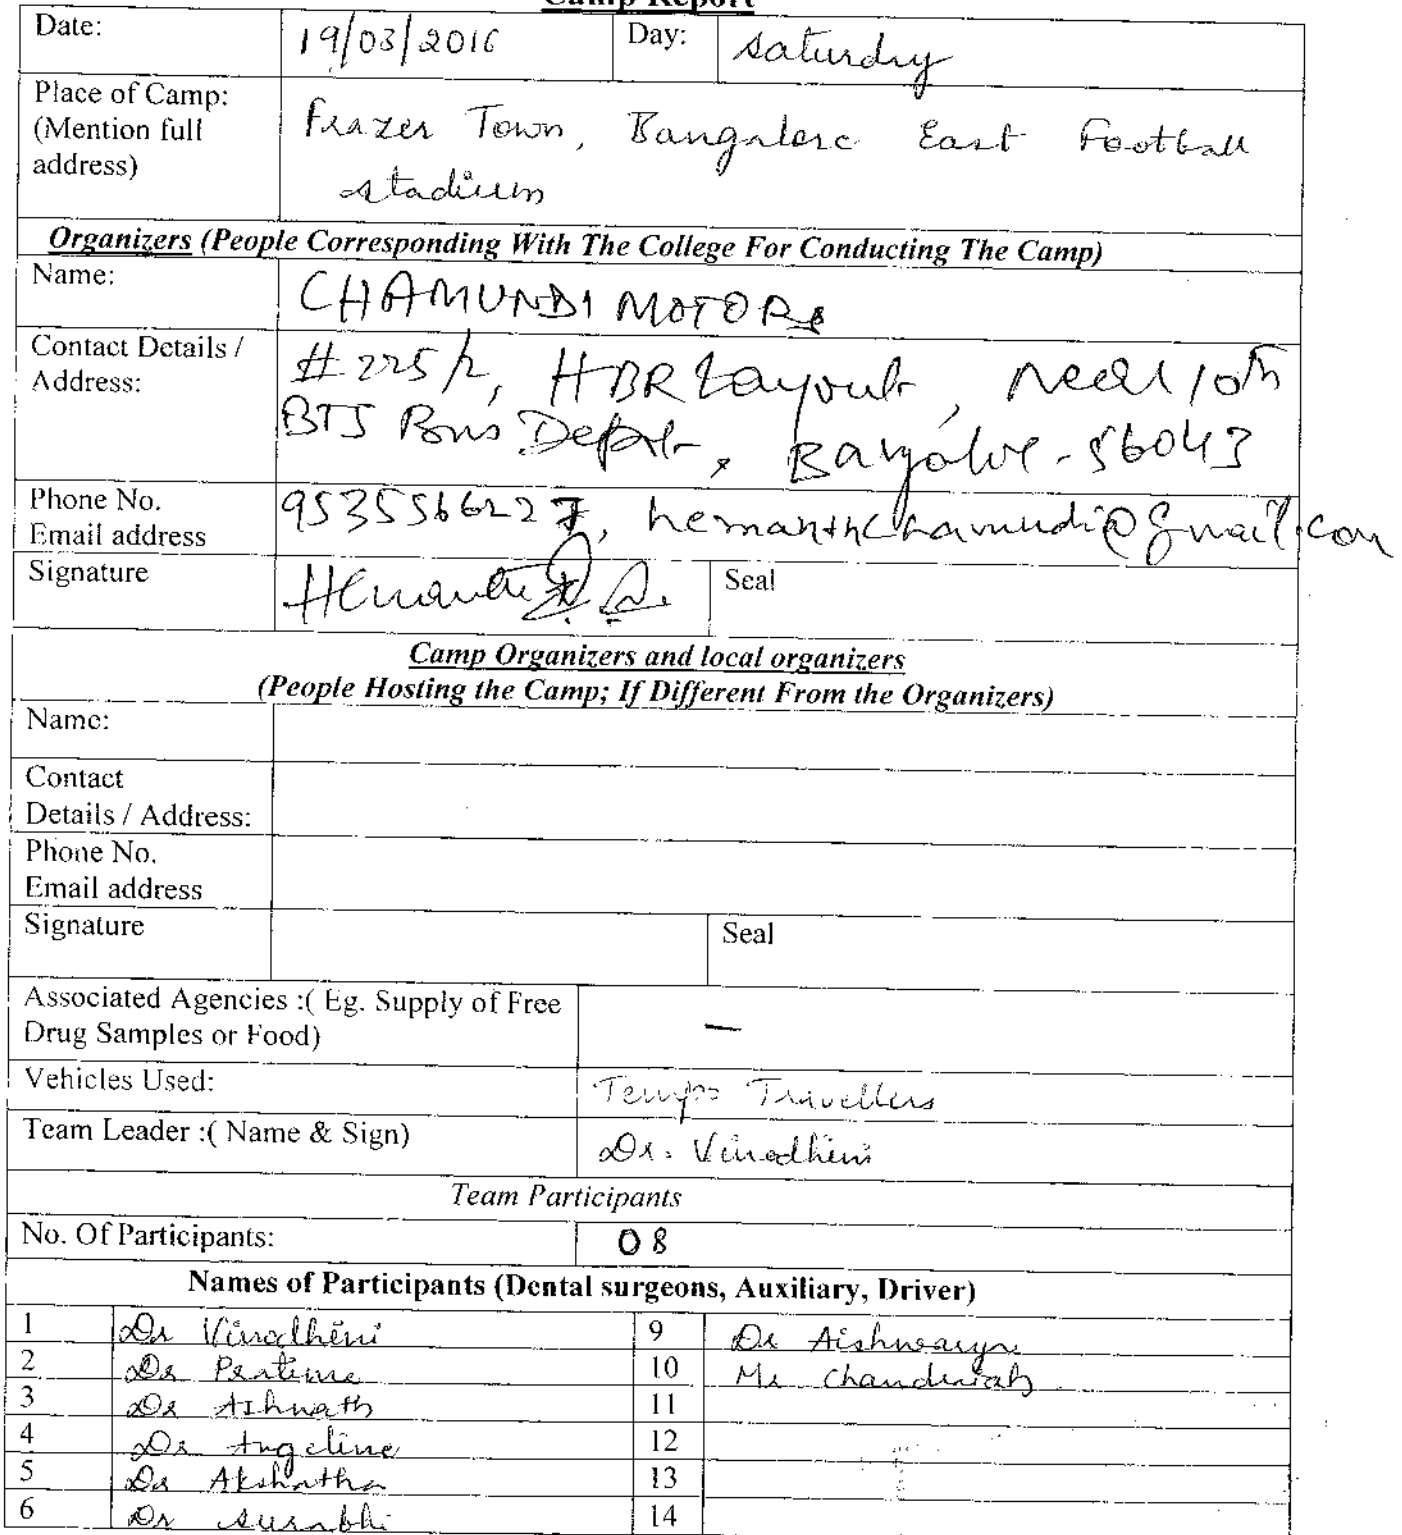 Camp Report
Date: 19/03/2016 Day: Saturday
Place of Camp: Frazer Town, Bangalore East Football
(Mention full
address) stadium
Organizers (People Corresponding With The College For Conducting The Camp)
Name: CHAMUNDI MOTORS
Contact Details / #225/2, HBR Layout, near 10th
Address: BTS Bus Depot, Bangalore-56043
Phone No. 9535566227, hemanthchamundi@gmail.com
Email address
Signature Hemanth Seal
Camp Organizers and local organizers
(People Hosting the Camp; If Different From the Organizers)
Name:
Contact
Details / Address:
Phone No.
Email address
Signature Seal
Associated Agencies :( Eg. Supply of Free
Drug Samples or Food) —
Vehicles Used: Tempo Travellers
Team Leader :( Name & Sign) Dr. Vinodhini
Team Participants
No. Of Participants: 08
Names of Participants (Dental surgeons, Auxiliary, Driver)
1 Dr Vinodhini 9 Dr Aishwarya
2 Dr Pratima 10 Mr Chandraiah
3 Dr Ashwath 11
4 Dr Angeline 12
5 Dr Akshatha 13
6 Dr Surabhi 14